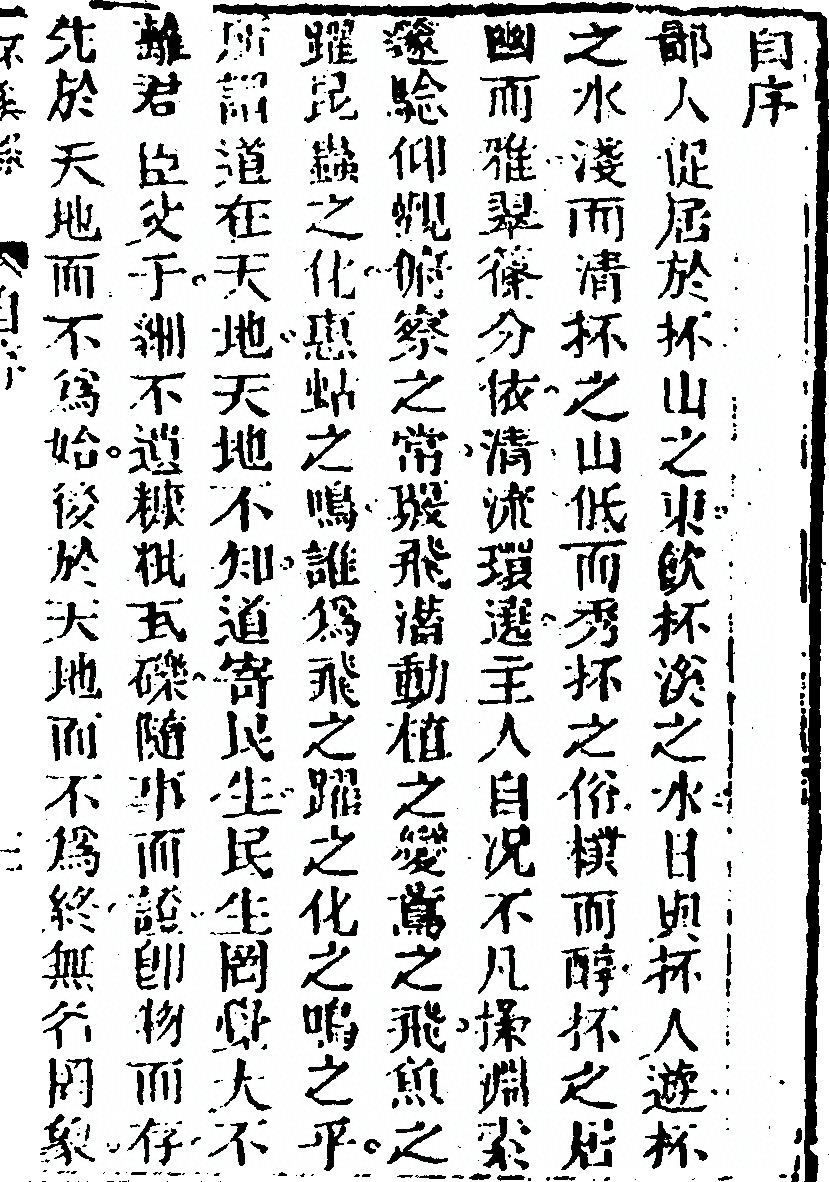 自序
鄙人促居於抔山之東飲抔溪之水日與抔人遊抔
之水淺而清抔之山低而秀抔之俗樸而醇抔之居
幽而雅翠篠分依清流環選主人自况不凡探淵索
邃驗仰觀俯察之常飛潛動植之變鳶之飛魚之
躍昆蟲之化蟪蛄之鳴誰為飛之躍之化之鳴之乎
所謂道在天地天地不知道寄民生民生罔覺大不
離君臣父子細不遺糠粃瓦礫隨事而證即物而存
先於天地而不為始後於天地而不為終無名罔象
自序